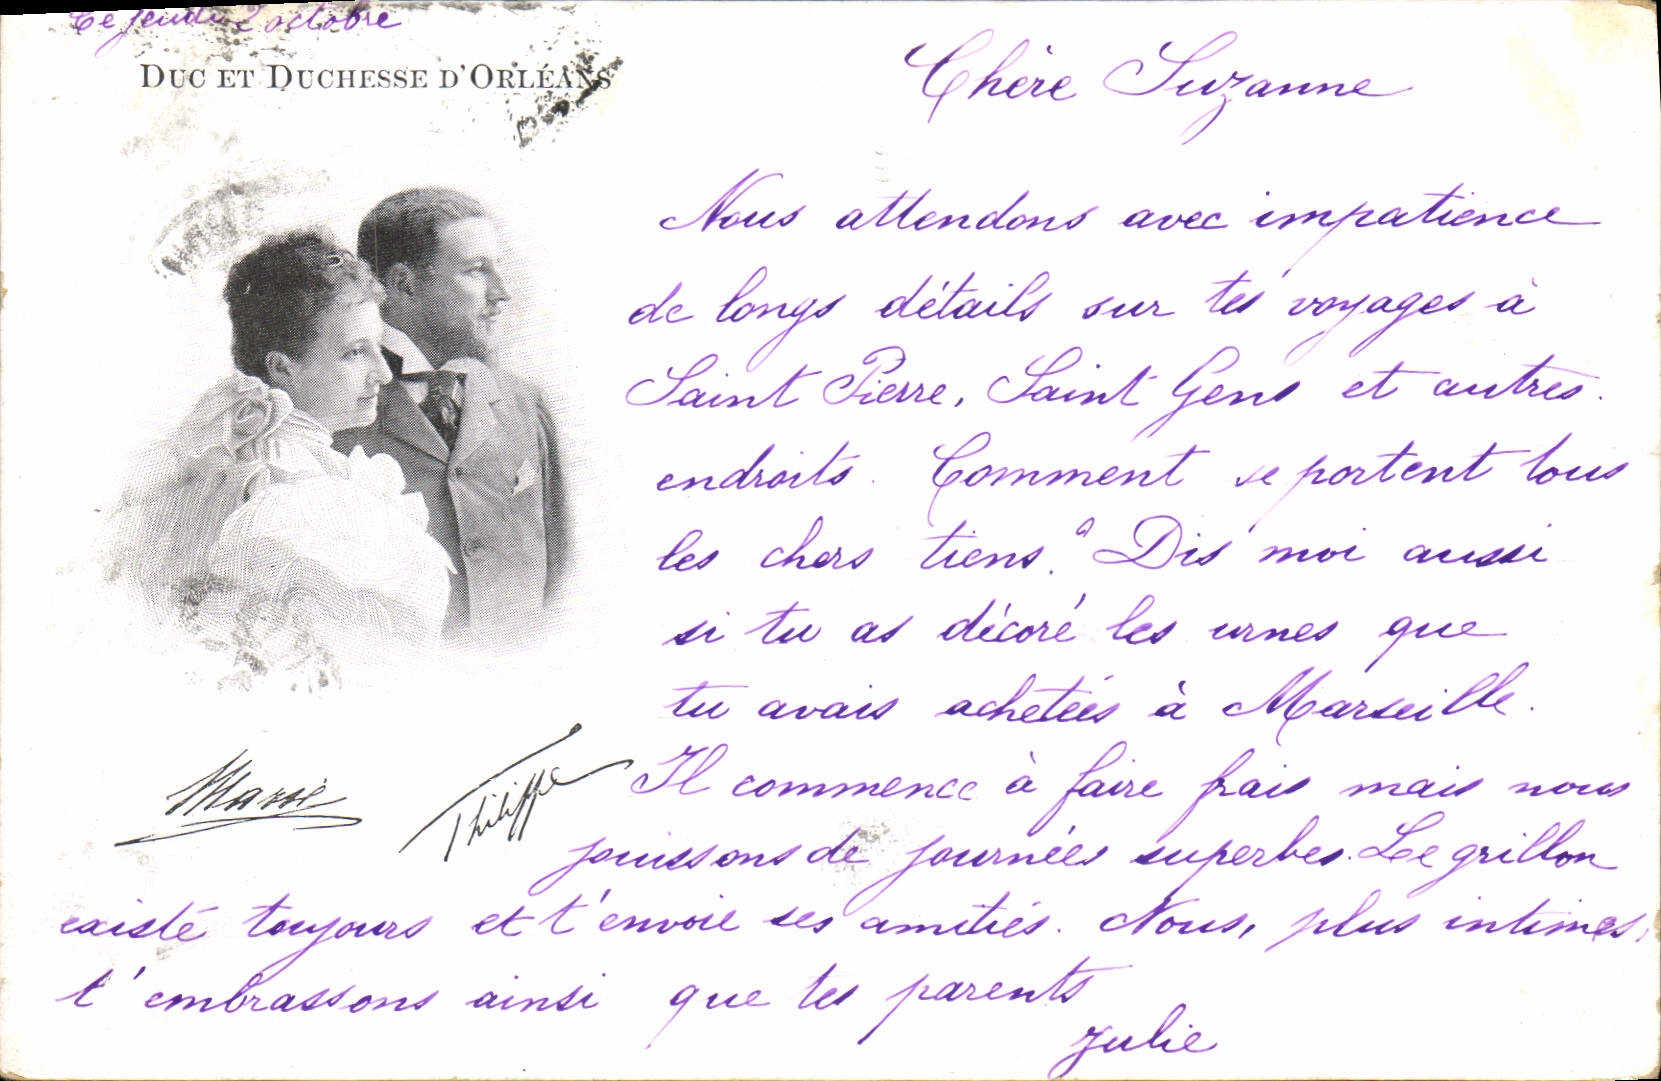 Ce jeudi 2 octobre
DUC ET DUCHESSE D'ORLÉANS
Chère Suzanne
Nous attendons avec impatience
de longs détails sur tes voyages à
Saint Pierre, Saint Gens et autres.
endroits. Comment se portent tous
les chers tiens? Dis moi aussi
si tu as décoré les urnes que
tu avais achetées à Marseille.
Il commence à faire frais mais nous
jouissons de journées superbes. Le grillon
existe toujours et t'envoie ses amitiés. Nous, plus intimes,
t'embrassons ainsi que tes parents
Julie
Philippe